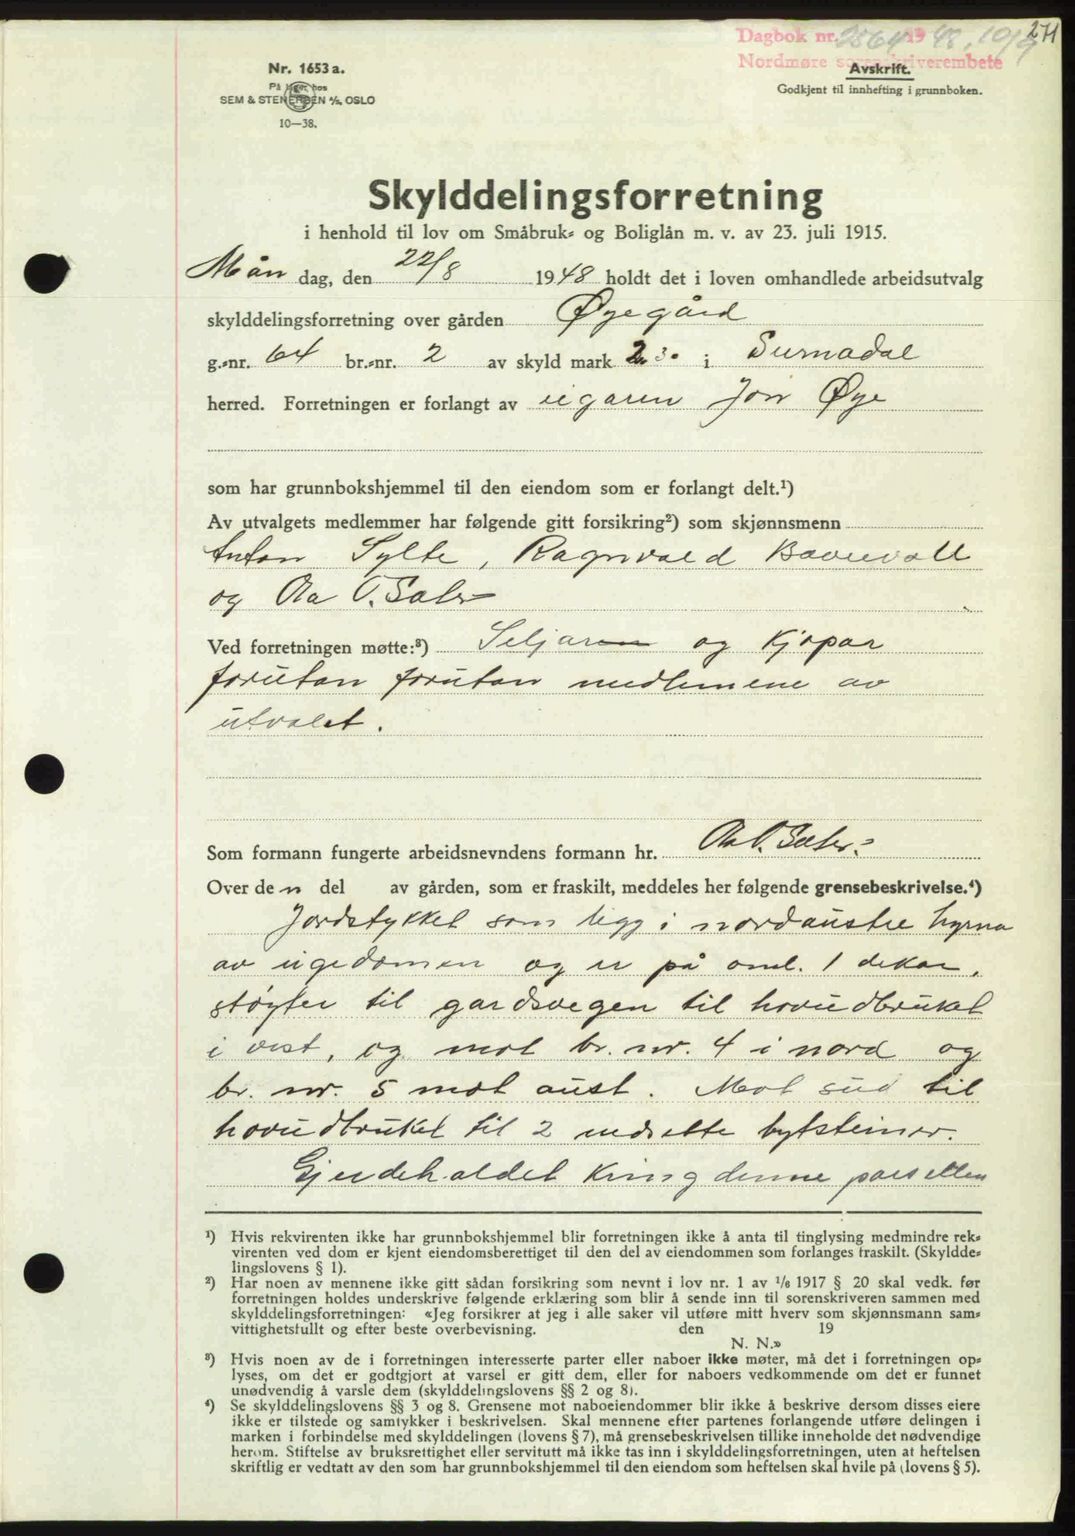 271
Dagbok nr. 2564 1948. 10/9
Nordmøre sorenskriverembete
Avskrift.
Godkjent til innhefting i grunnboken.
Nr. 1653 a.
På lager hos
SEM & STENERSEN A/S, OSLO
10—38.
Skylddelingsforretning
i henhold til lov om Småbruk- og Boliglån m. v. av 23. juli 1915.
Mån dag, den 22/8 1948 holdt det i loven omhandlede arbeidsutvalg
skylddelingsforretning over gården Øyegård
g.-nr. 64 br.-nr. 2 av skyld mark 2.30 i Surnadal
herred. Forretningen er forlangt av eigaren Jon Øye
som har grunnbokshjemmel til den eiendom som er forlangt delt.¹)
Av utvalgets medlemmer har følgende gitt forsikring²) som skjønnsmenn
Anton Sylte, Ragnvald Bævervoll
og Ola O. Sæter
Ved forretningen møtte:³) Seljaren og Kjøpar
forutan forutan medlemene av
utvalet.
Som formann fungerte arbeidsnevndens formann hr. Ola O. Sæter.
Over den del av gården, som er fraskilt, meddeles her følgende grensebeskrivelse.⁴)
Jordstykket som ligg i nordaustre hyrna
av eigedomen og er på oml. 1 dekar,
støyter til gardsvegen til hovudbruket
i vest, og mot br. nr. 4 i nord og
br. nr. 5 mot aust. Mot sud til
hovudbruket til 2 nedsette bytsteiner.
Gjerdehaldet kring denne parsellen
¹) Hvis rekvirenten ikke har grunnbokshjemmel blir forretningen ikke å anta til tinglysing medmindre rek-
virenten ved dom er kjent eiendomsberettiget til den del av eiendommen som forlanges fraskilt. (Skyldde-
lingslovens § 1).
²) Har noen av mennene ikke gitt sådan forsikring som nevnt i lov nr. 1 av 1/6 1917 § 20 skal vedk. før
forretningen holdes underskrive følgende erklæring som blir å sende inn til sorenskriveren sammen med
skylddelingsforretningen: «Jeg forsikrer at jeg i alle saker vil utføre mitt hverv som skjønnsmann sam-
vittighetsfullt og efter beste overbevisning. den 19
N. N.»
³) Hvis noen av de i forretningen interesserte parter eller naboer ikke møter, må det i forretningen op-
lyses, om det er godtgjort at varsel er gitt dem, eller for naboers vedkommende om det er funnet
unødvendig å varsle dem (skylddelingslovens §§ 2 og 8).
⁴) Se skylddelingslovens §§ 3 og 8. Grensene mot naboeiendommer blir ikke å beskrive dersom disses eiere
ikke er tilstede og samtykker i beskrivelsen. Skal mennene efter partenes forlangende utføre delingen i
marken i forbindelse med skylddelingen (lovens § 7), må grensebeskrivelsen tillike inneholde det nødvendige
herom. Stiftelse av bruksrettighet eller servitutt må ikke tas inn i skylddelingsforretningen, uten at heftelsen
skriftlig er vedtatt av den som har grunnbokshjemmel til den eiendom som heftelsen skal hvile på (lovens § 5).